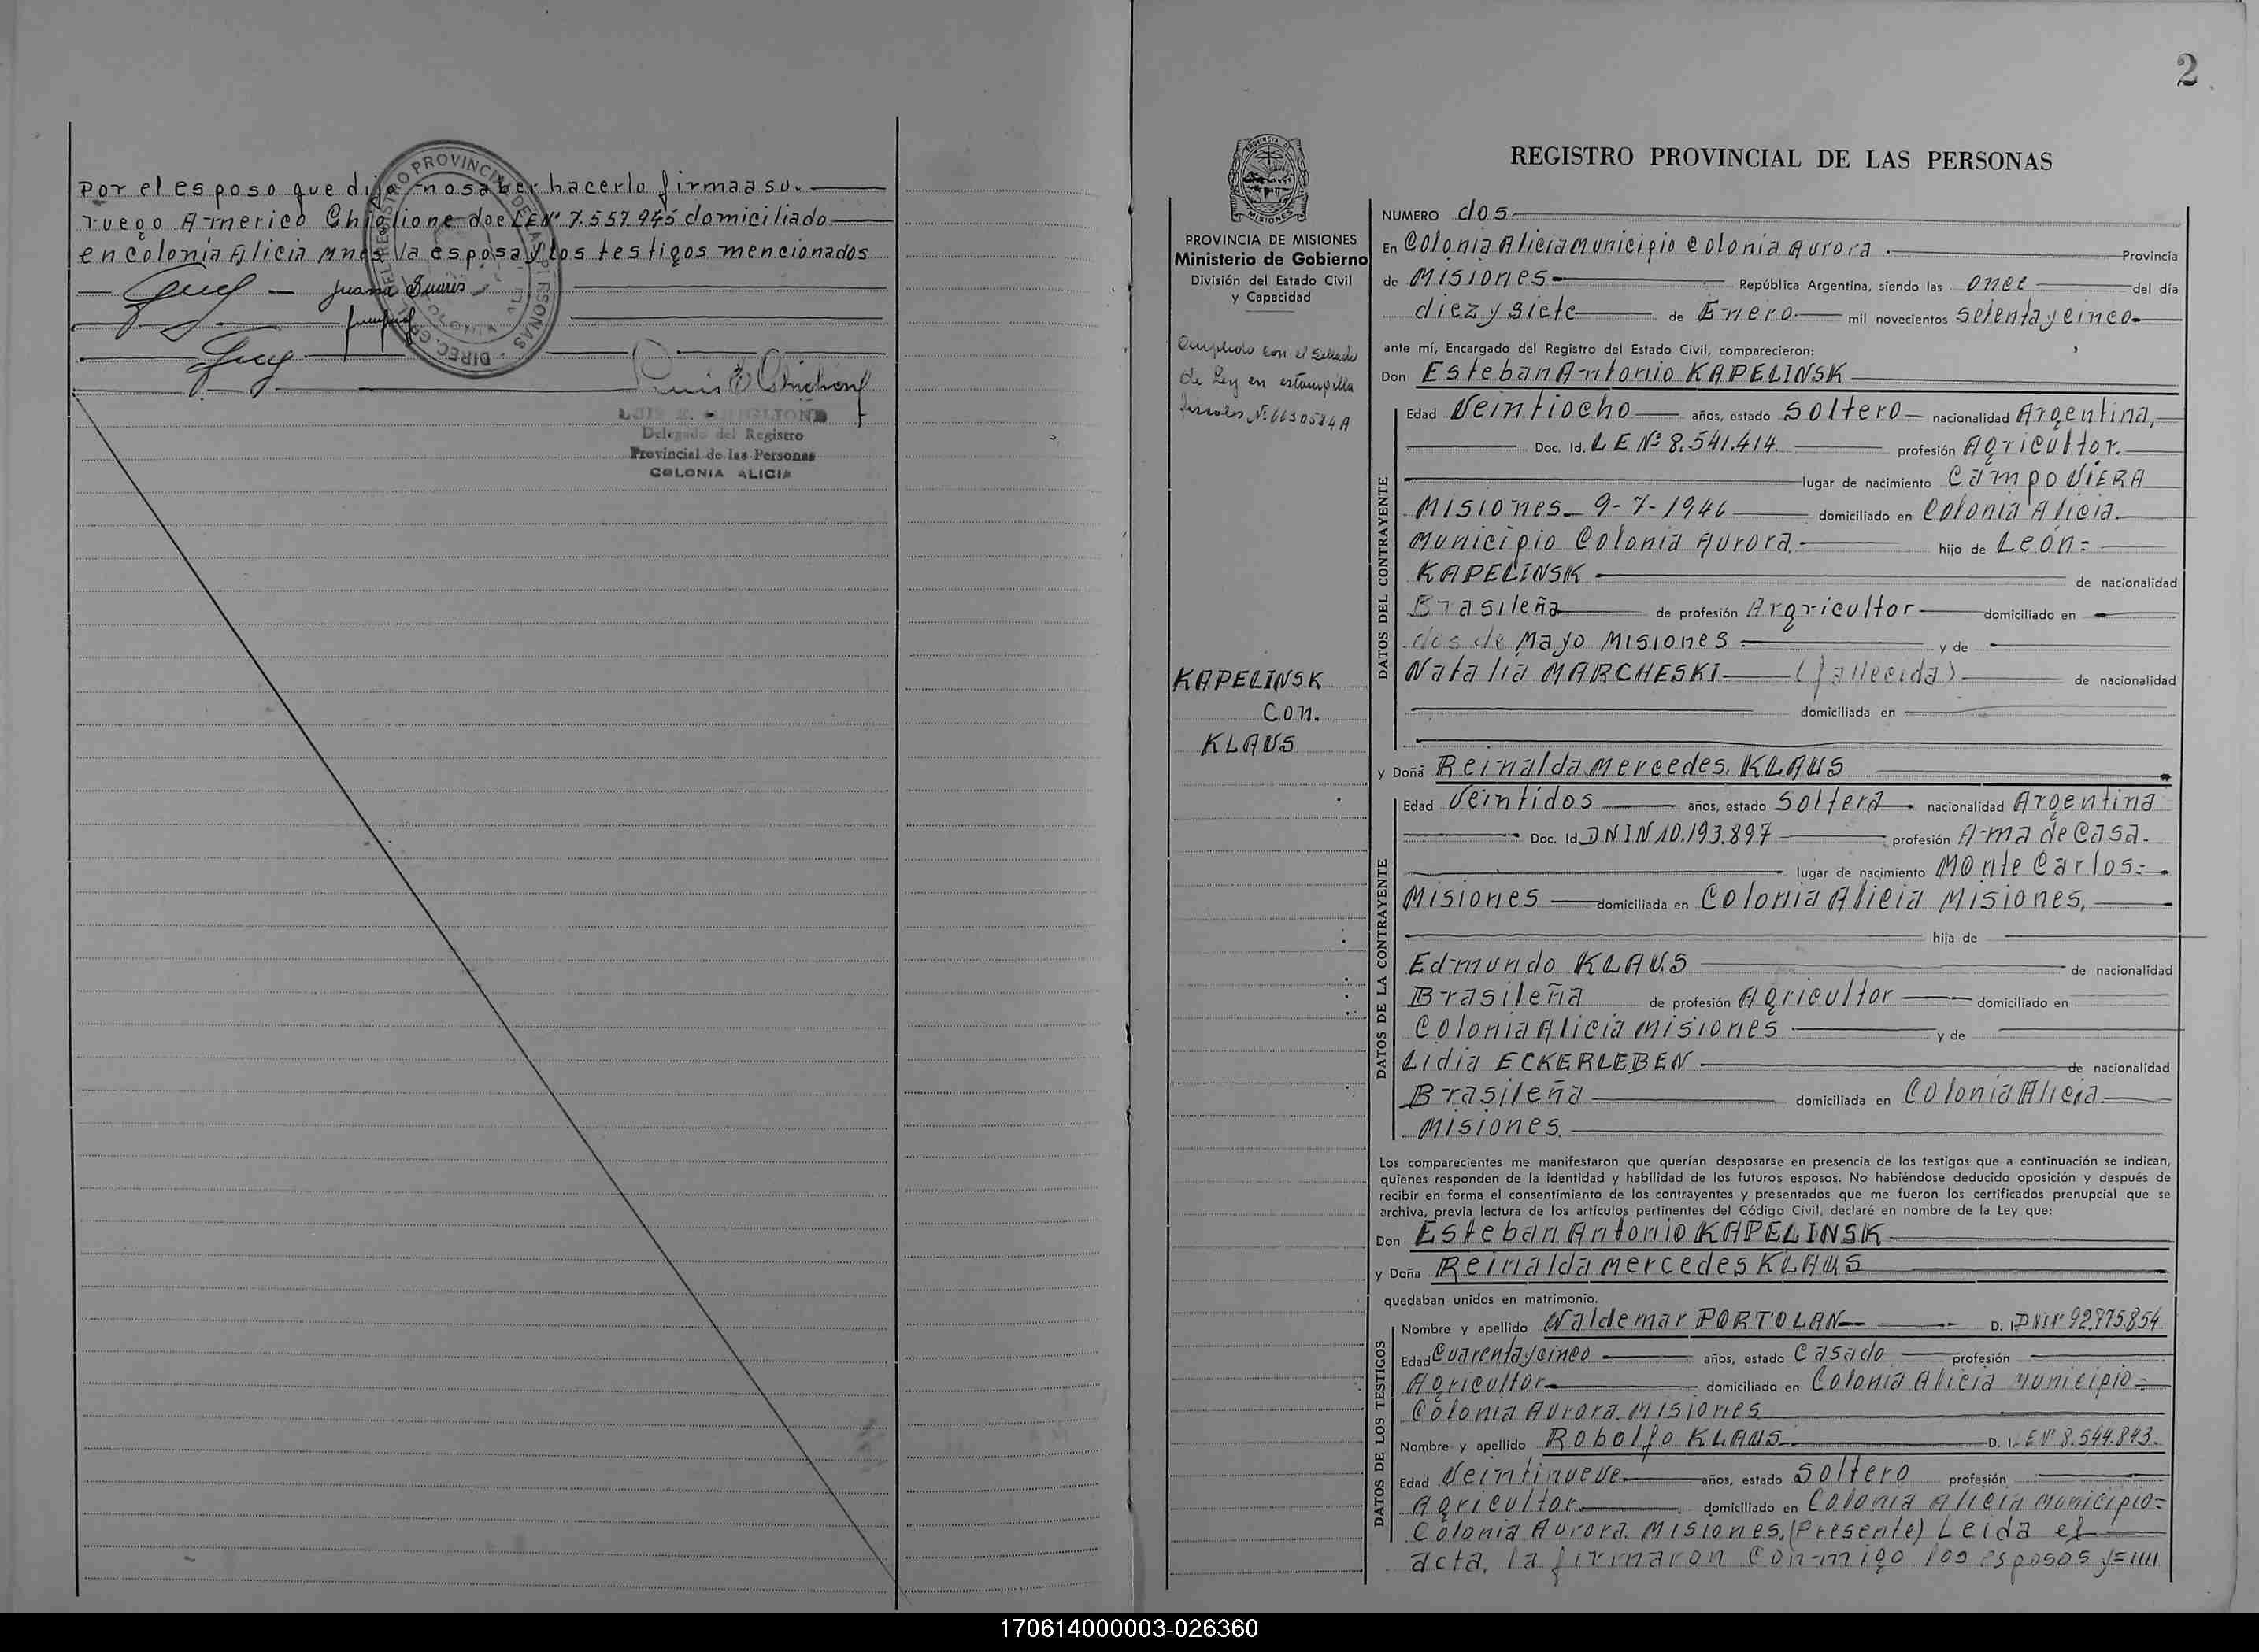 Por el esposo que dijo no saber hacerlo firma a su.
ruego Americo Chiglione doc LE Nº 7.557.945 domiciliado
en Colonia Alicia Mnes la esposa y los testigos mencionados
Juana
LUIS E. CHIGLIONE
Delegado del Registro
Provincial de las Personas
COLONIA ALICIA
2
PROVINCIA DE MISIONES
Ministerio de Gobierno
División del Estado Civil
y Capacidad
con el
de Ley en estampilla
KAPELINSK
Con.
KLAUS
REGISTRO PROVINCIAL DE LAS PERSONAS
NUMERO dos
En Colonia Alicia Municipio Colonia Aurora. Provincia
de Misiones República Argentina, siendo las once del día
diez y siete de Enero mil novecientos setenta y cinco
ante mí, Encargado del Registro del Estado Civil, comparecieron:
Don Esteban Antonio KAPELINSK
DATOS DEL CONTRAYENTE
Edad Veintiocho años, estado Soltero nacionalidad Argentina,
Doc. Id. L E Nº 8.541.414. profesión Agricultor.
lugar de nacimiento Campo VIERA
Misiones 9-7-1946 domiciliado en Colonia Alicia.
Municipio Colonia Aurora. hijo de León=
KAPELINSK de nacionalidad
Brasileña de profesión Argricultor domiciliado en
dos de Mayo Misiones y de
Natalia MARCHESKI (fallecida) de nacionalidad
domiciliada en
y Doña Reinalda Mercedes. KLAUS
DATOS DE LA CONTRAYENTE
Edad Veintidos años, estado Soltera nacionalidad Argentina
Doc. Id. DNI N 10.193.897 profesión Ama de Casa.
lugar de nacimiento Monte Carlos=
Misiones domiciliada en Colonia Alicia Misiones,
hija de
Edmundo KLAUS de nacionalidad
Brasileña de profesión Agricultor domiciliado en
Colonia Alicia Misiones y de
Lidia ECKERLEBEN de nacionalidad
Brasileña domiciliada en Colonia Alicia.
Misiones.
Los comparecientes me manifestaron que querían desposarse en presencia de los testigos que a continuación se indican,
quienes responden de la identidad y habilidad de los futuros esposos. No habiéndose deducido oposición y después de
recibir en forma el consentimiento de los contrayentes y presentados que me fueron los certificados prenupcial que se
archiva, previa lectura de los artículos pertinentes del Código Civil, declaré en nombre de la Ley que:
Don Esteban Antonio KAPELINSK
y Doña Reinalda Mercedes KLAUS
quedaban unidos en matrimonio.
DATOS DE LOS TESTIGOS
Nombre y apellido Waldemar PORTOLAN D. I. DNI Nº 92.775.854
Edad Cuarenta y cinco años, estado Casado profesión
Agricultor domiciliado en Colonia Alicia Municipio=
Colonia Aurora. Misiones
Nombre y apellido Robolfo KLAUS D. I. L E Nº 8.544.843.
Edad Veintinueve años, estado Soltero profesión
Agricultor domiciliado en Colonia Alicia Municipio=
Colonia Aurora. Misiones. (Presente) Leida el
acta, la firmaron Conmigo los esposos y=
170614000003-026360